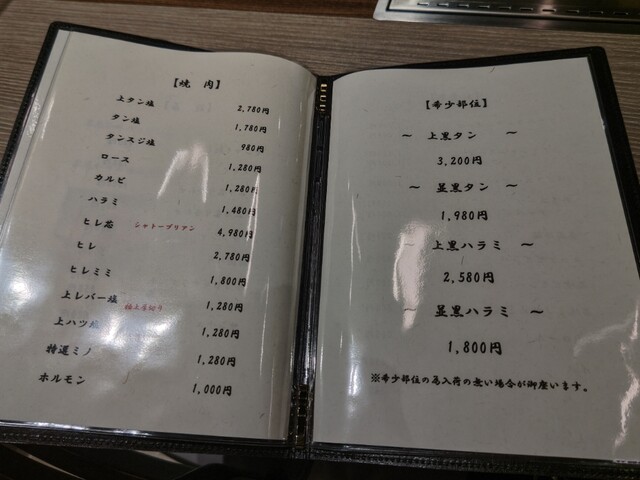 【焼 肉】
上タン塩 2,780円
タン塩 1,780円
タンスジ塩 980円
ロース 1,280円
カルビ 1,280円
ハラミ 1,480円
ヒレ芯 シャトーブリアン 4,980円
ヒレ 2,780円
ヒレミミ 1,800円
上レバー塩 極上厚切り 1,280円
上ハツ塩 1,280円
特選ミノ 1,280円
ホルモン 1,000円
【希少部位】
～ 上黒タン ～
3,200円
～ 並黒タン ～
1,980円
～ 上黒ハラミ ～
2,580円
～ 並黒ハラミ ～
1,800円
※希少部位の為入荷の無い場合が御座います。